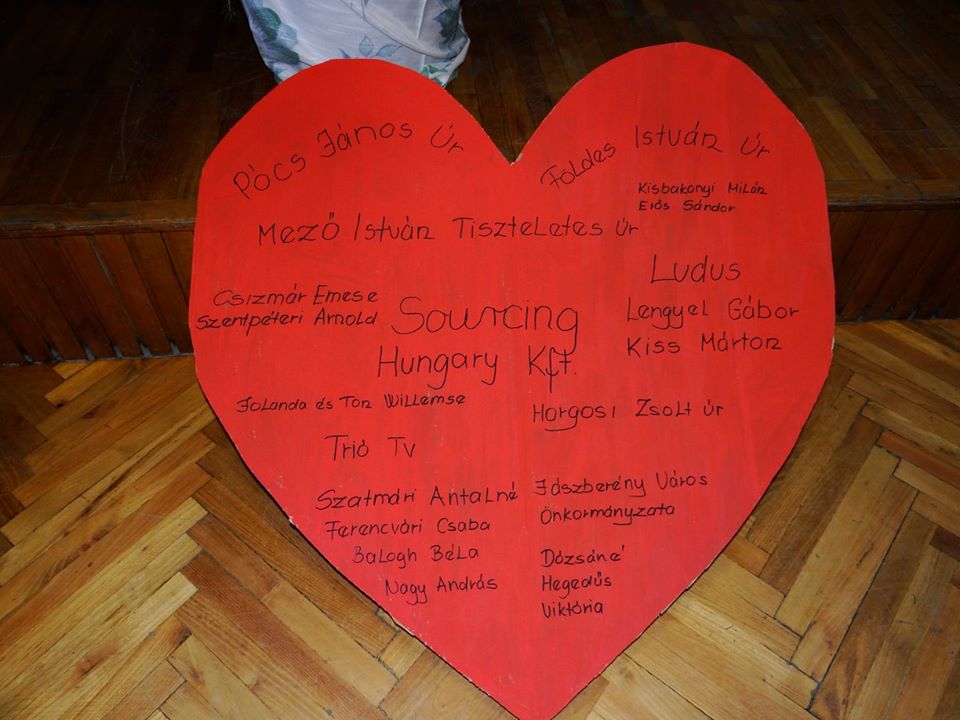 Pócs János Úr
Földes István Úr
Kisbakonyi Milán
Erős Sándor
Mező István Tiszteletes úr
Ludus
Lengyel Gábor
Kiss Márton
Csizmár Emese
Szentpéteri Arnold
Sourcing
Hungary Kft.
Jolanda és Ton Willemse
Horgosi Zsolt úr
Trió Tv
Szatmári Antalné
Ferencvári Csaba
Balogh Béla
Nagy András
Jászberény Város
Önkormányzata
Dózsáné
Hegedűs
Viktória